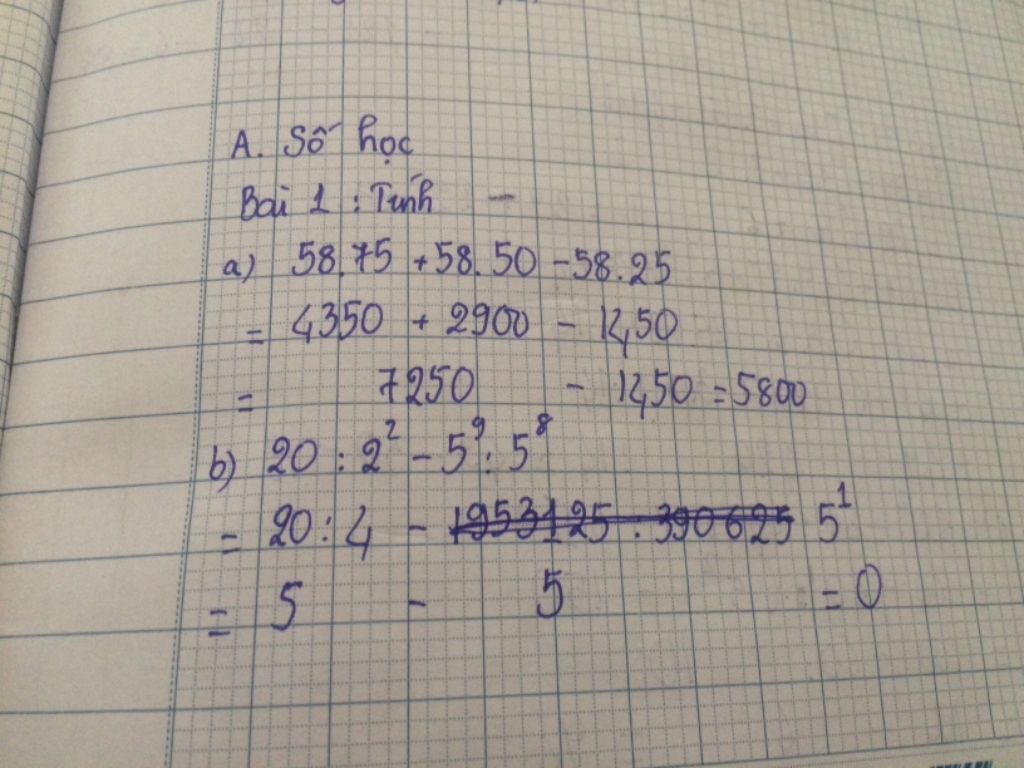 A. Số học
Bài 1 : Tính
a) 58.75 + 58.50 - 58.25
= 4350 + 2900 - 1450
= 7250 - 1450 = 5800
b) 20 : 2² - 5⁹ : 5⁸
= 20 : 4 - 1953125 : 390625 5¹
= 5 - 5 = 0